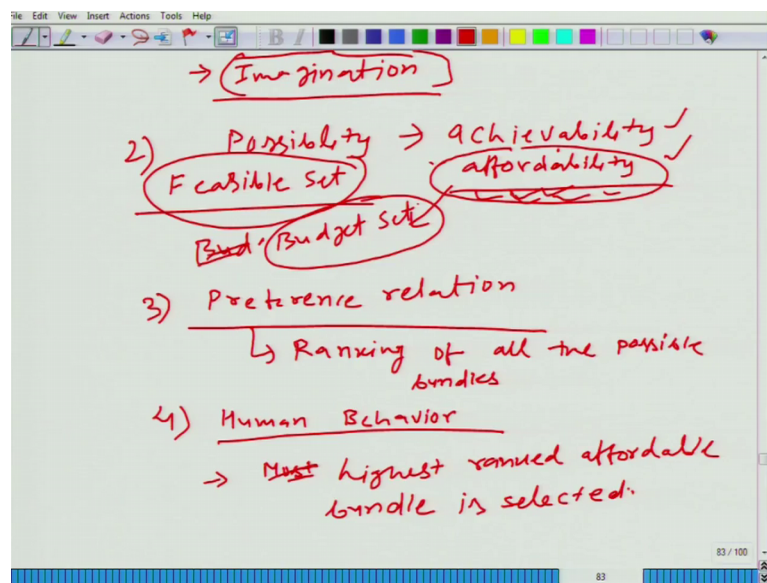 File Edit View Insert Actions Tools Help
B I
→ Imagination
2) Possibility → achievability ✓
Feasible Set affordability ✓
Bud. Budget Set
3) Preference relation
↳ Ranking of all the possible
bundles
4) Human Behavior
→ Most highest ranked affordable
bundle is selected.
83 / 100
83